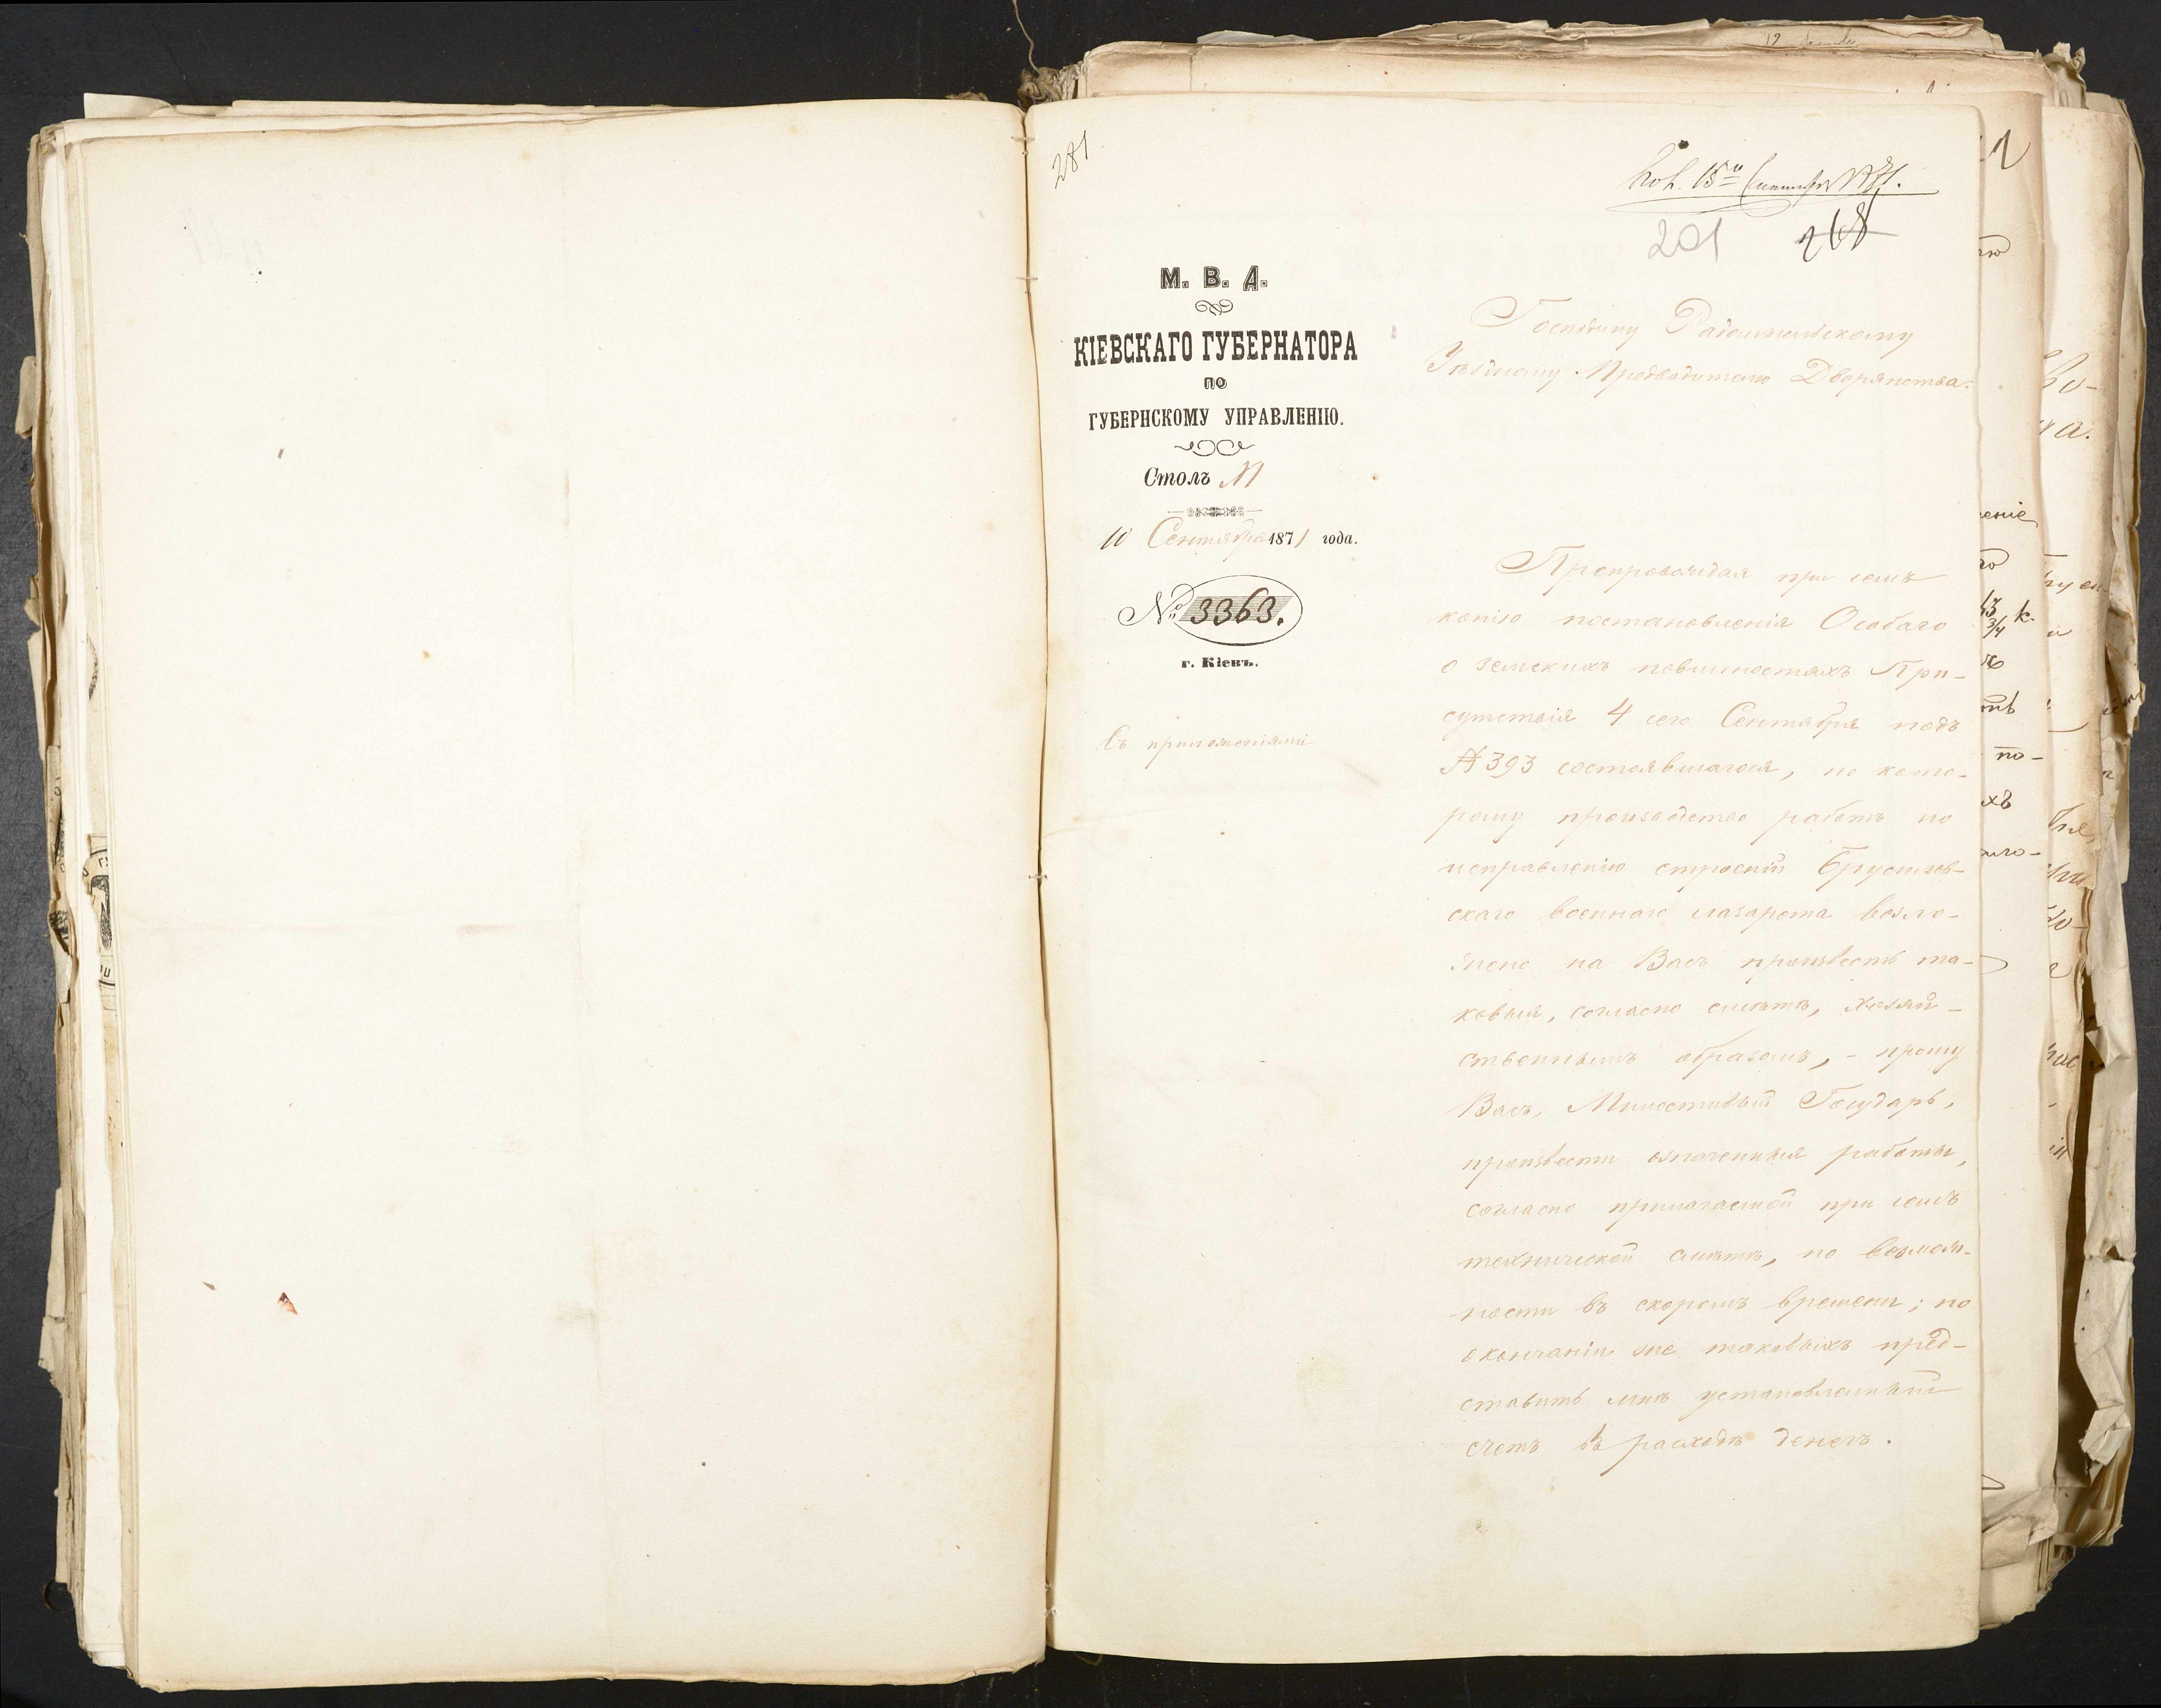 281
Пол. 15го Сентября 1871.
201 268
М. В. Д.
КІЕВСКАГО ГУБЕРНАТОРА
ПО
ГУБЕРНСКОМУ УПРАВЛЕНІЮ.
Столъ VI
10 Сентября 1871 года.
№ 3363.
г. Кіевъ.
Съ приложеніями
Господину Радомысльскому
Уѣздному Предводителю Дворянства.
Препровождая при семъ
копію постановленія Особаго
о земскихъ повинностяхъ При-
сутствія 4 сего Сентября подъ
№ 393 состоявшагося, по кото-
рому производство работъ по
исправленію строеній Брусилов-
скаго военнаго лазарета возло-
жено на Васъ произвесть та-
ковыя, согласно смѣтѣ, хозяй-
ственнымъ образомъ, - прошу
Васъ, Милостивый Государь,
произвести означенныя работы,
согласно прилагаемой при семъ
технической смѣтѣ, по возмож-
ности въ скоромъ времени; по
окончаніи же таковыхъ пред-
ставить мнѣ установленный
счетъ въ расходѣ денегъ.